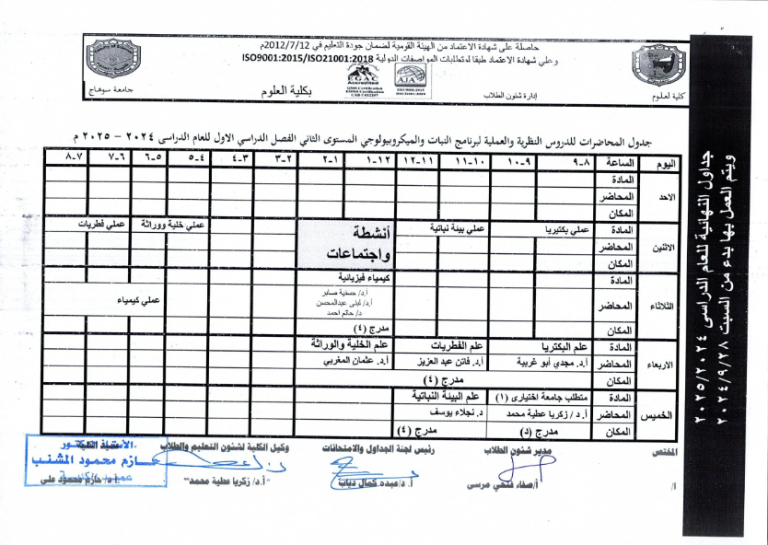 حاصلة على شهادة الاعتماد من الهيئة القومية لضمان جودة التعليم في 2012/7/12م
وعلى شهادة الاعتماد طبقا لمتطلبات المواصفات الدولية ISO9001:2015/ISO21001:2018
EGAC
AJA
كلية العلوم
إدارة شئون الطلاب
بكلية العلوم
جامعة سوهاج
جدول المحاضرات للدروس النظرية والعملية لبرنامج النبات والميكروبيولوجي المستوى الثاني الفصل الدراسي الاول للعام الدراسي ٢٠٢٤ - ٢٠٢٥ م
اليوم الساعة ٨-٩ ٩-١٠ ١٠-١١ ١١-١٢ ١٢-١ ١-٢ ٢-٣ ٣-٤ ٤-٥ ٥-٦ ٦-٧ ٧-٨
الاحد
المادة
المحاضر
المكان
الاثنين
المادة عملي بكتيريا عملي بيئة نباتية أنشطة واجتماعات عملي خلية ووراثة عملي فطريات
المحاضر
المكان
الثلاثاء
المادة كيمياء فيزيائية
المحاضر
أ.د/ حسنية صابر
أ.د/ لبنى عبدالمحسن
د/ حاتم احمد
عملي كيمياء
المكان مدرج (٤)
الاربعاء
المادة علم البكتريا علم الفطريات علم الخلية والوراثة
المحاضر أ.د. مجدي أبو غريبة أ.د. فاتن عبد العزيز أ.د. عثمان المغربي
المكان مدرج (٤)
الخميس
المادة متطلب جامعة اختياري (١) علم البيئة النباتية
المحاضر أ.د / زكريا عطية محمد د. نجلاء يوسف
المكان مدرج (د) مدرج (٤)
المختص مدير شئون الطلاب رئيس لجنة الجداول والامتحانات وكيل الكلية لشئون التعليم والطلاب
أ/ أ/صفاء فتحي مرسى أ.د/عبده كمال دياب أ.د/ زكريا عطية محمد أ.د/ حازم محمود على
الأستاذ الدكتور
حازم محمود المشنب
جداول النهائية للعام الدراسى ٢٠٢٥/٢٠٢٤
ويتم العمل بها بدء من السبت ٢٠٢٤/٩/٢٨